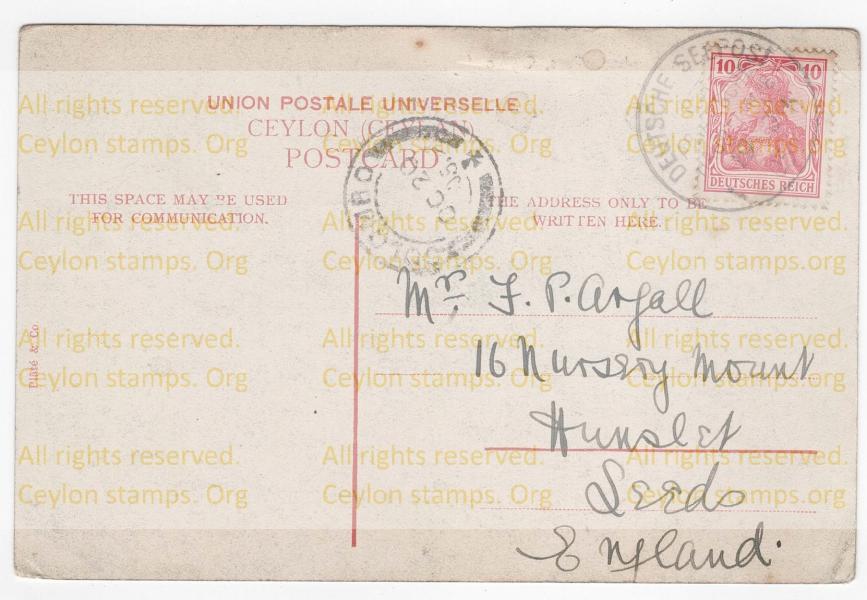 UNION POSTALE UNIVERSELLE
CEYLON (CEYLAN)
POSTCARD
THIS SPACE MAY BE USED
FOR COMMUNICATION.
THE ADDRESS ONLY TO BE
WRITTEN HERE.
DEUTSCHE SEEPOST
10 10
DEUTSCHES REICH
COLOMBO
OC 20
Mr. F. P. Argall
16 Nursery Mount
Hunslet
Leeds
England.
Plâté & Co
All rights reserved. All rights reserved. All rights reserved.
Ceylon stamps. Org Ceylon stamps. Org Ceylon stamps. Org
All rights reserved. All rights reserved. All rights reserved.
Ceylon stamps. Org Ceylon stamps. Org Ceylon stamps. Org
All rights reserved. All rights reserved. All rights reserved.
Ceylon stamps. Org Ceylon stamps. Org Ceylon stamps. Org
All rights reserved. All rights reserved. All rights reserved.
Ceylon stamps. Org Ceylon stamps. Org Ceylon stamps. Org